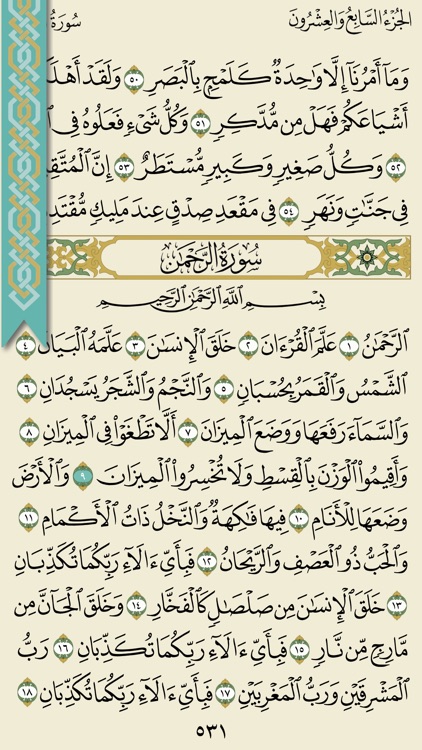 الجزء السابع والعشرون سورة
وَمَآ أَمْرُنَآ إِلَّا وَٰحِدَةٌ كَلَمْحٍۭ بِٱلْبَصَرِ ٥٠ وَلَقَدْ أَهْلَ
أَشْيَاعَكُمْ فَهَلْ مِن مُّدَّكِرٍ ٥١ وَكُلُّ شَىْءٍ فَعَلُوهُ فِى
٥٢ وَكُلُّ صَغِيرٍ وَكَبِيرٍ مُّسْتَطَرٌ ٥٣ إِنَّ ٱلْمُتَّقِ
فِى جَنَّٰتٍ وَنَهَرٍ ٥٤ فِى مَقْعَدِ صِدْقٍ عِندَ مَلِيكٍ مُّقْتَدِ
سُورَةُ الرَّحْمَٰن
بِسْمِ ٱللَّهِ ٱلرَّحْمَٰنِ ٱلرَّحِيمِ
ٱلرَّحْمَٰنُ ١ عَلَّمَ ٱلْقُرْءَانَ ٢ خَلَقَ ٱلْإِنسَٰنَ ٣ عَلَّمَهُ ٱلْبَيَانَ ٤
ٱلشَّمْسُ وَٱلْقَمَرُ بِحُسْبَانٍ ٥ وَٱلنَّجْمُ وَٱلشَّجَرُ يَسْجُدَانِ ٦
وَٱلسَّمَآءَ رَفَعَهَا وَوَضَعَ ٱلْمِيزَانَ ٧ أَلَّا تَطْغَوْا۟ فِى ٱلْمِيزَانِ ٨
وَأَقِيمُوا۟ ٱلْوَزْنَ بِٱلْقِسْطِ وَلَا تُخْسِرُوا۟ ٱلْمِيزَانَ ٩ وَٱلْأَرْضَ
وَضَعَهَا لِلْأَنَامِ ١٠ فِيهَا فَٰكِهَةٌ وَٱلنَّخْلُ ذَاتُ ٱلْأَكْمَامِ ١١
وَٱلْحَبُّ ذُو ٱلْعَصْفِ وَٱلرَّيْحَانُ ١٢ فَبِأَىِّ ءَالَآءِ رَبِّكُمَا تُكَذِّبَانِ
١٣ خَلَقَ ٱلْإِنسَٰنَ مِن صَلْصَٰلٍ كَٱلْفَخَّارِ ١٤ وَخَلَقَ ٱلْجَآنَّ مِن
مَّارِجٍ مِّن نَّارٍ ١٥ فَبِأَىِّ ءَالَآءِ رَبِّكُمَا تُكَذِّبَانِ ١٦ رَبُّ
ٱلْمَشْرِقَيْنِ وَرَبُّ ٱلْمَغْرِبَيْنِ ١٧ فَبِأَىِّ ءَالَآءِ رَبِّكُمَا تُكَذِّبَانِ ١٨
٥٣١